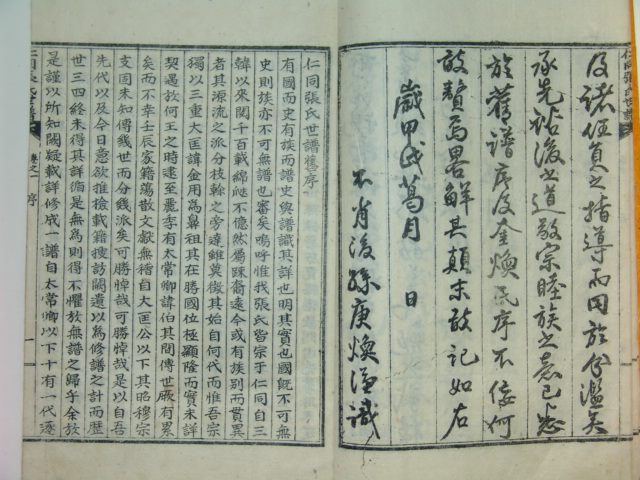 及諸任員之指導而同於僉濫矣
承先啓後之道敦宗睦族之意已悉
於舊譜序及金煥氏序不佞何
敢贅焉畧觧其顚末敢記如右
歲甲戌葛月 日
不肖後孫庚煥謹識
仁同張氏世譜舊序
有國而史有族而譜史與譜識其詳也明其實也國旣不可無
史則族亦不可無譜也審矣嗚呼惟我張氏皆宗于仁同自三
韓以來閱千百載綿延不億然屬踈裔遠今或有族別而貫異
者其源流之派分枝榦之旁達雖莫徵其始自何代而惟吾宗
獨以三重大匡諱金用為鼻祖其在勝國位極顯隆而實未詳
契遇扵何王之時逮至麗季有太常卿諱伯其間傳世厥有累
矣而不幸壬辰家籍蕩散文獻無稽自大匡公以下其昭穆宗
支固未知傳幾世而分幾派矣可勝悼哉可勝悼哉是以自吾
先代以及今日意欲推檢載籍搜訪闕遺以為修譜之計而歷
世三四終未得其詳循是無為則得不懼放無譜之歸乎余放
是謹以所知闕疑載詳修成一譜自太常卿以下十有一代逐
仁同張氏世譜 卷之一 序